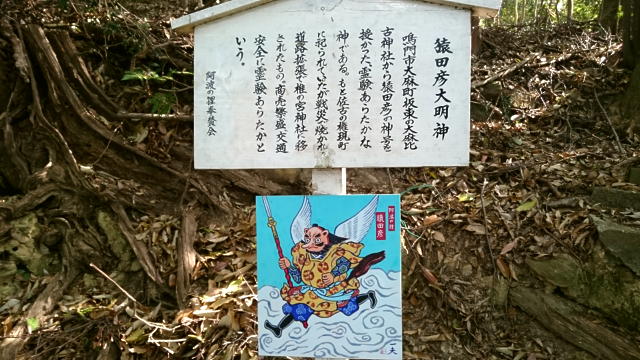 猿田彦大明神
鳴門市大麻町坂東の大麻比
古神社から猿田彦の神号を
授かった霊験あらたかな
神である。もと佐古の椎現町
に祀られていたが戦災で焼かれ
道路拡張で椎の宮神社に移
されたもの。商売繁盛、交通
安全に霊験あらたかと
いう。
阿波の狸奉賛会
阿波の狸
猿田彦
天